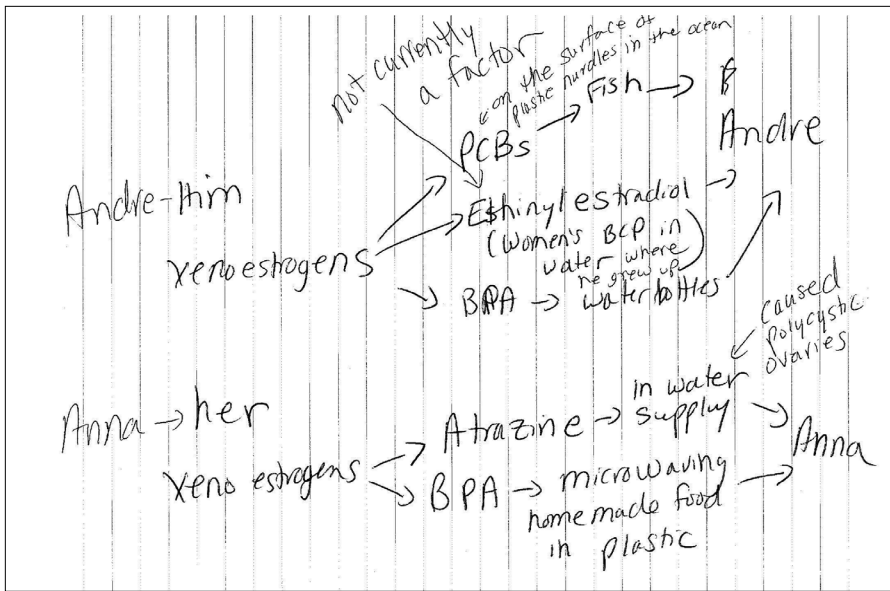 not currently
a factor
on the surface of
plastic nurdles in the ocean
PCBs → Fish → B
Andre
Andre-Him
xenoestrogens
Ethinylestradiol
(Women's BCP in
water where
he grew up)
BPA → water bottles
caused
polycystic
ovaries
Anna → her
xeno estrogens
Atrazine → in water
supply
Anna
BPA → microwaving
homemade food
in plastic